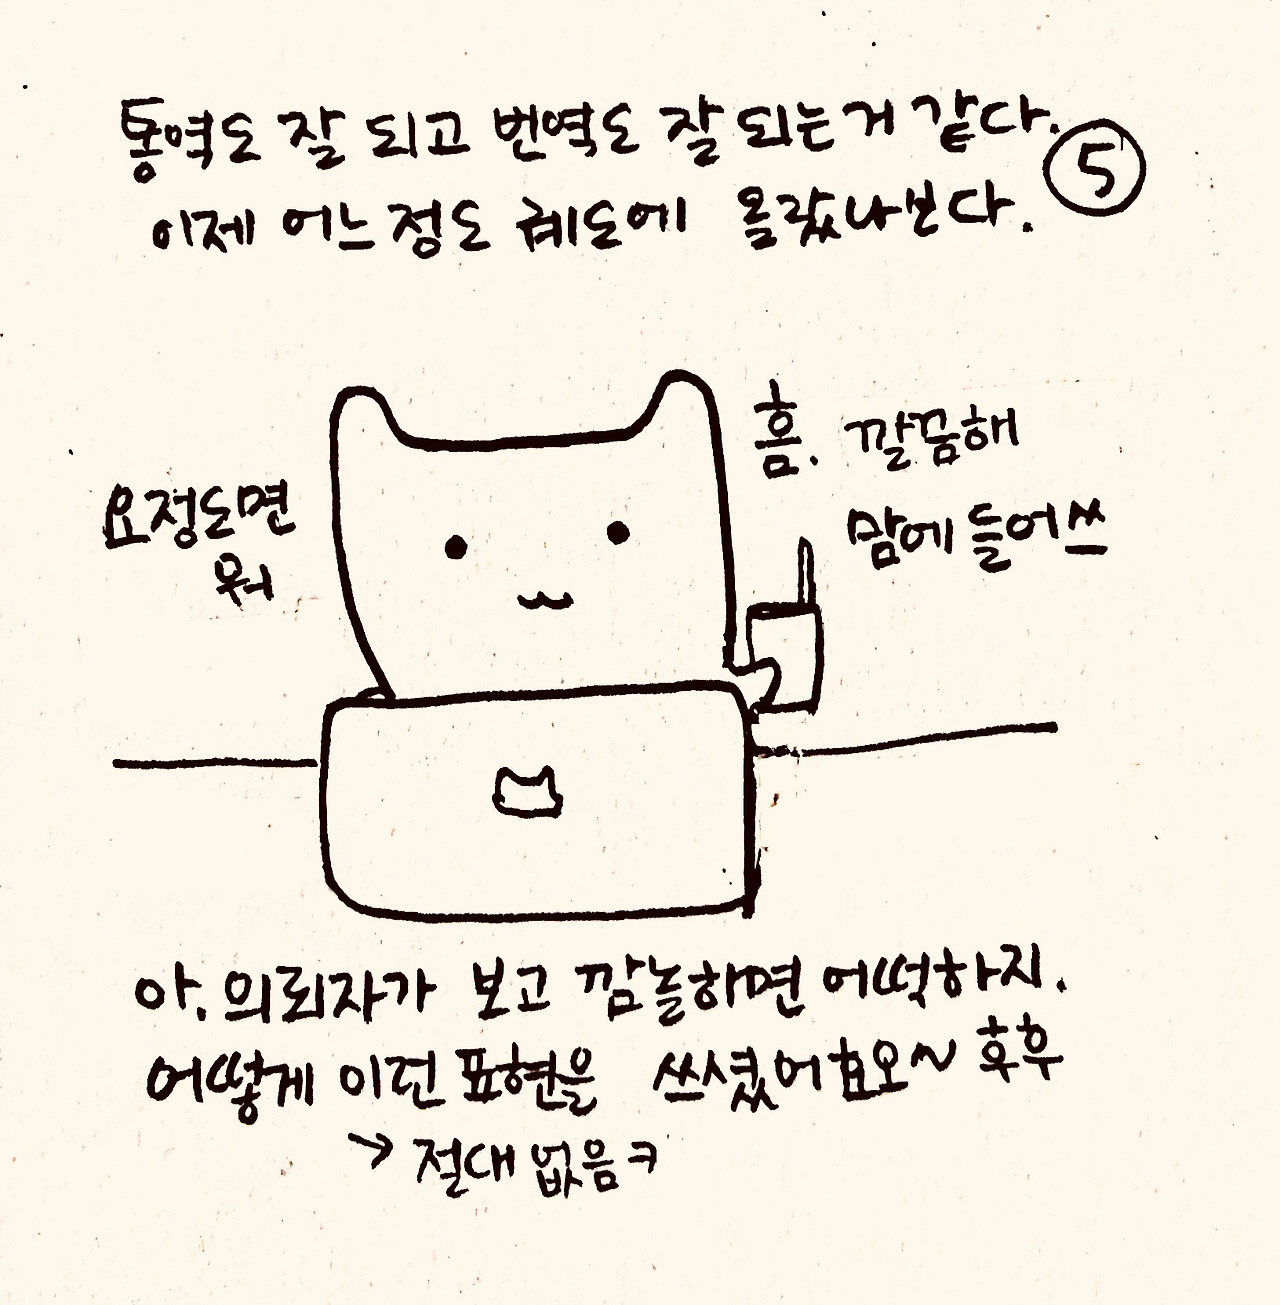 통역도 잘 되고 번역도 잘 되는거 같다.
⑤
이제 어느정도 궤도에 올랐나보다.
흠. 깔끔해
맘에 들어쓰
요정도면
뭐
아. 의뢰자가 보고 깜놀하면 어떡하지.
어떻게 이런 표현을 쓰셨어효오~ 후후
→ 절대 없음ㅋ